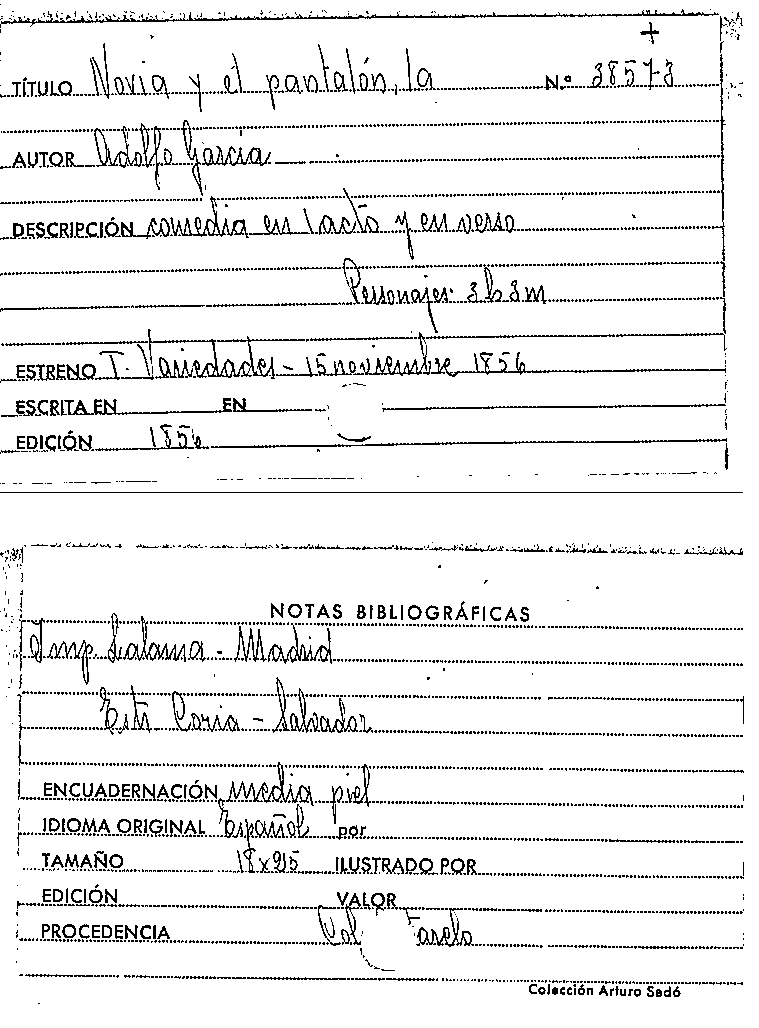 +
TÍTULO Novia y el pantalón, la N.º 38573
AUTOR Adolfo García
DESCRIPCIÓN comedia en 1 acto y en verso
Personajes: 3 h 3 m
ESTRENO T. Variedades - 15 noviembre 1856
ESCRITA EN EN
EDICIÓN 1856
NOTAS BIBLIOGRÁFICAS
Imp. Lalama - Madrid
Coria - Salvador
ENCUADERNACIÓN media piel
IDIOMA ORIGINAL Español por
TAMAÑO ILUSTRADO POR
EDICIÓN VALOR
PROCEDENCIA Col
Colección Arturo Sedó